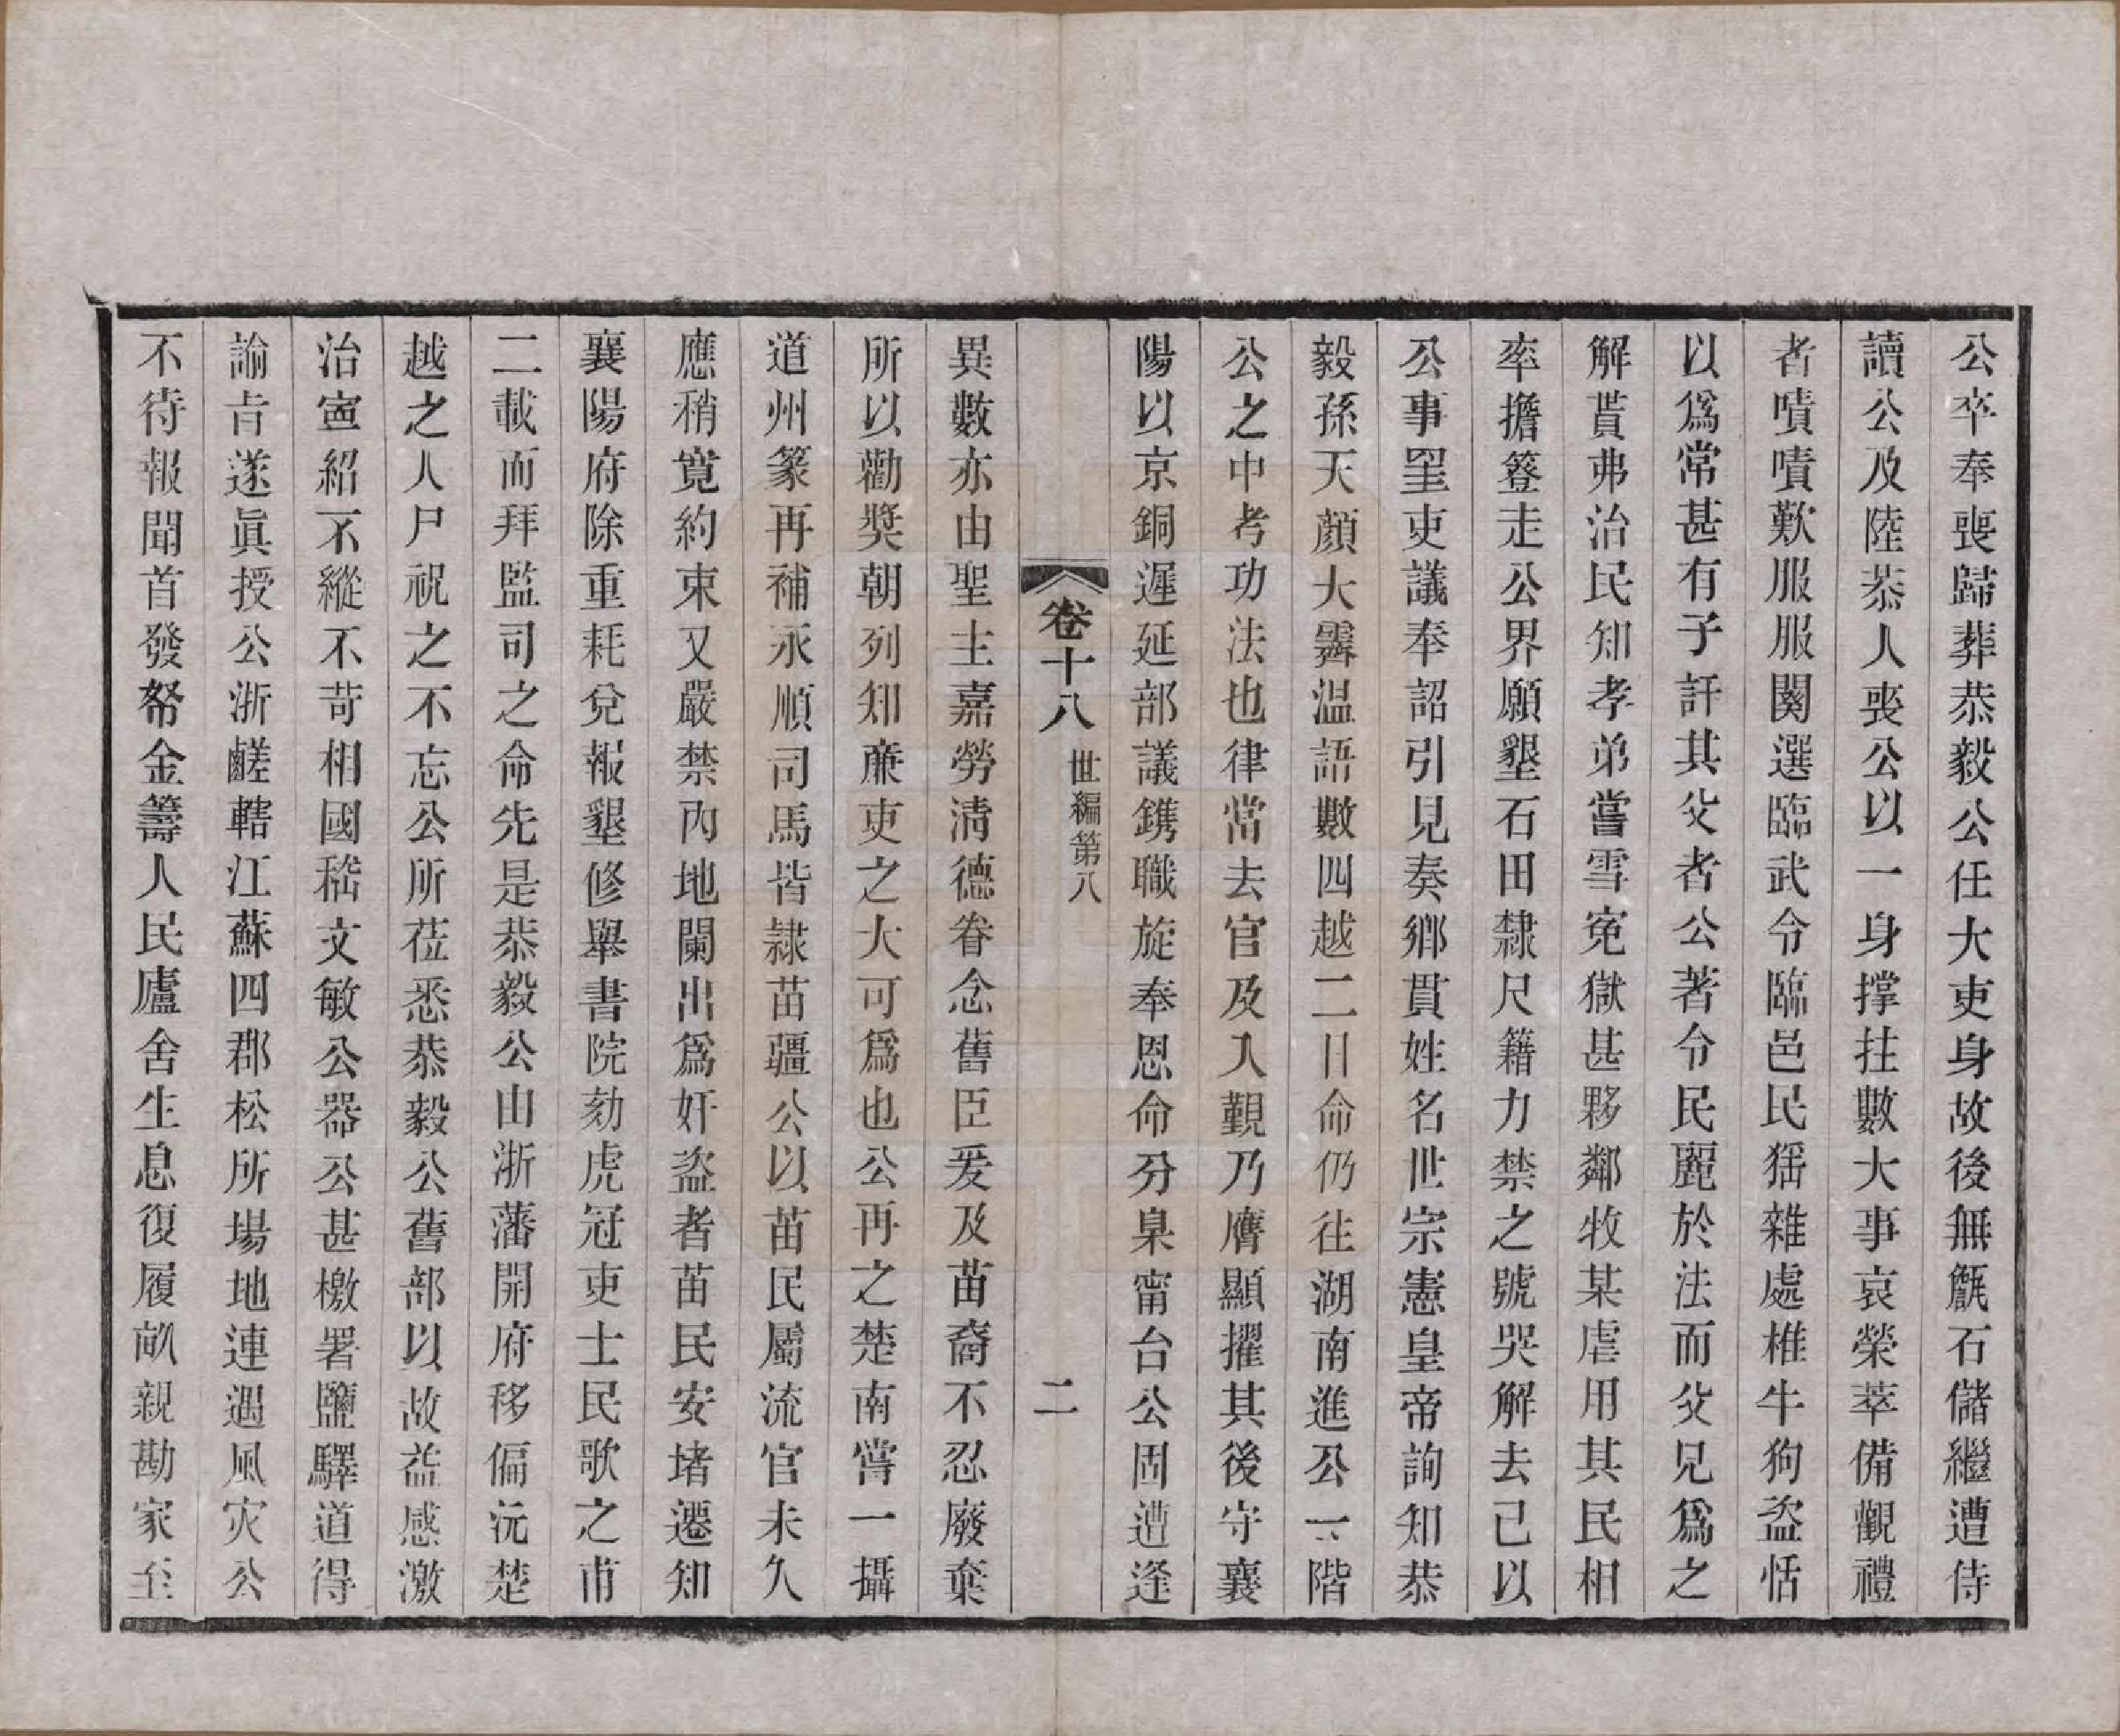 公卒奉喪歸葬恭毅公任大吏身故後無甔石儲繼遭侍
讀公及陸恭人喪公以一身撐拄數大事哀榮萃備觀禮
者嘖嘖歎服服闋選臨武令臨邑民猺雜處椎牛狗盜恬
以爲常甚有子訐其父者公著令民麗於法而父兄爲之
解貰弗治民知孝弟嘗雪寃獄甚夥鄰牧某虐用其民相
率擔簦走公界願墾石田隸尺籍力禁之號哭解去已以
公事罣吏議奉詔引見奏鄉貫姓名世宗憲皇帝詢知恭
毅孫天顏大霽温語數四越二日命仍往湖南進公一階
公之中考功法也律當去官及入覲乃膺顯擢其後守襄
陽以京銅遲延部議鐫職旋奉恩命分臬甯台公固遭逢
卷十八 世編第八 二
異數亦由聖主嘉勞淸德眷念舊臣爰及苗裔不忍廢棄
所以勸奬朝列知亷吏之大可爲也公再之楚南嘗一攝
道州篆再補永順司馬皆隸苗疆公以苗民屬流官未久
應稍寬約束又嚴禁內地闌出爲奸盜者苗民安堵遷知
襄陽府除重耗兌報墾修舉書院劾虎冠吏士民歌之甫
二載而拜監司之命先是恭毅公由浙藩開府移偏沅楚
越之人尸祝之不忘公所莅悉恭毅公舊部以故益感激
治寍紹不縱不苛相國嵇文敏公器公甚檄署鹽驛道得
諭旨遂眞授公浙鹺轄江蘇四郡松所場地連遇風灾公
不待報聞首發帑金籌人民廬舍生息復履畝親勘家至